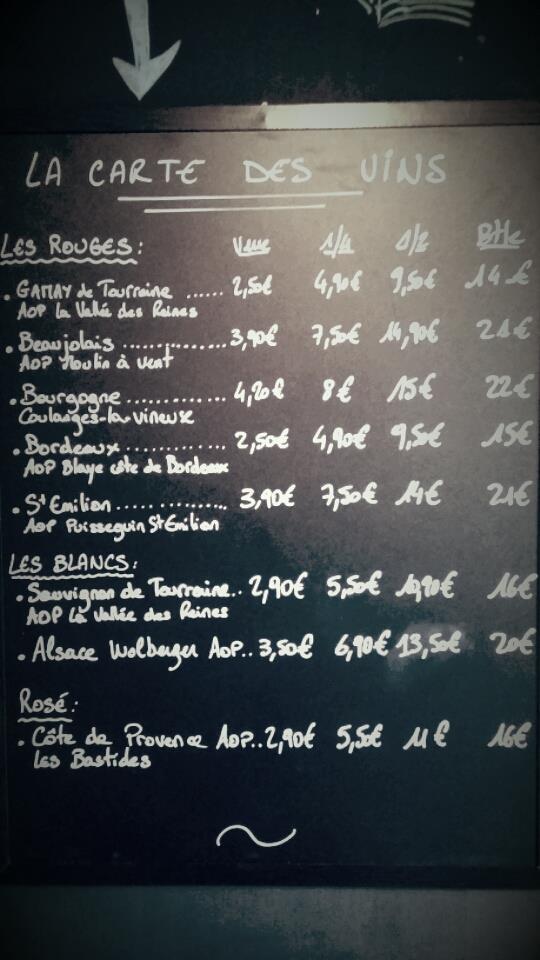 LA CARTE DES VINS
LES ROUGES: Verre 1/4 1/2 Btlle
• GAMAY de Tourraine ...... 2,50€ 4,90€ 9,50€ 14€
AOP La Vallée des Reines
• Beaujolais .............. 3,90€ 7,50€ 14,90€ 21€
AOP Moulin à vent
• Bourgogne ............ 4,20€ 8€ 15€ 22€
Coulanges-la-vineuse
• Bordeaux ............ 2,50€ 4,90€ 9,50€ 15€
AOP Blaye côte de Bordeaux
• St Emilion .............. 3,90€ 7,50€ 14€ 21€
AOP Puisseguin St Emilion
LES BLANCS:
• Sauvignon de Tourraine.. 2,90€ 5,50€ 10,90€ 16€
AOP La Vallée des Reines
• Alsace Wolberger AOP.. 3,50€ 6,90€ 13,50€ 20€
Rosé:
• Côte de Provence AOP.. 2,90€ 5,50€ 11€ 16€
Les Bastides